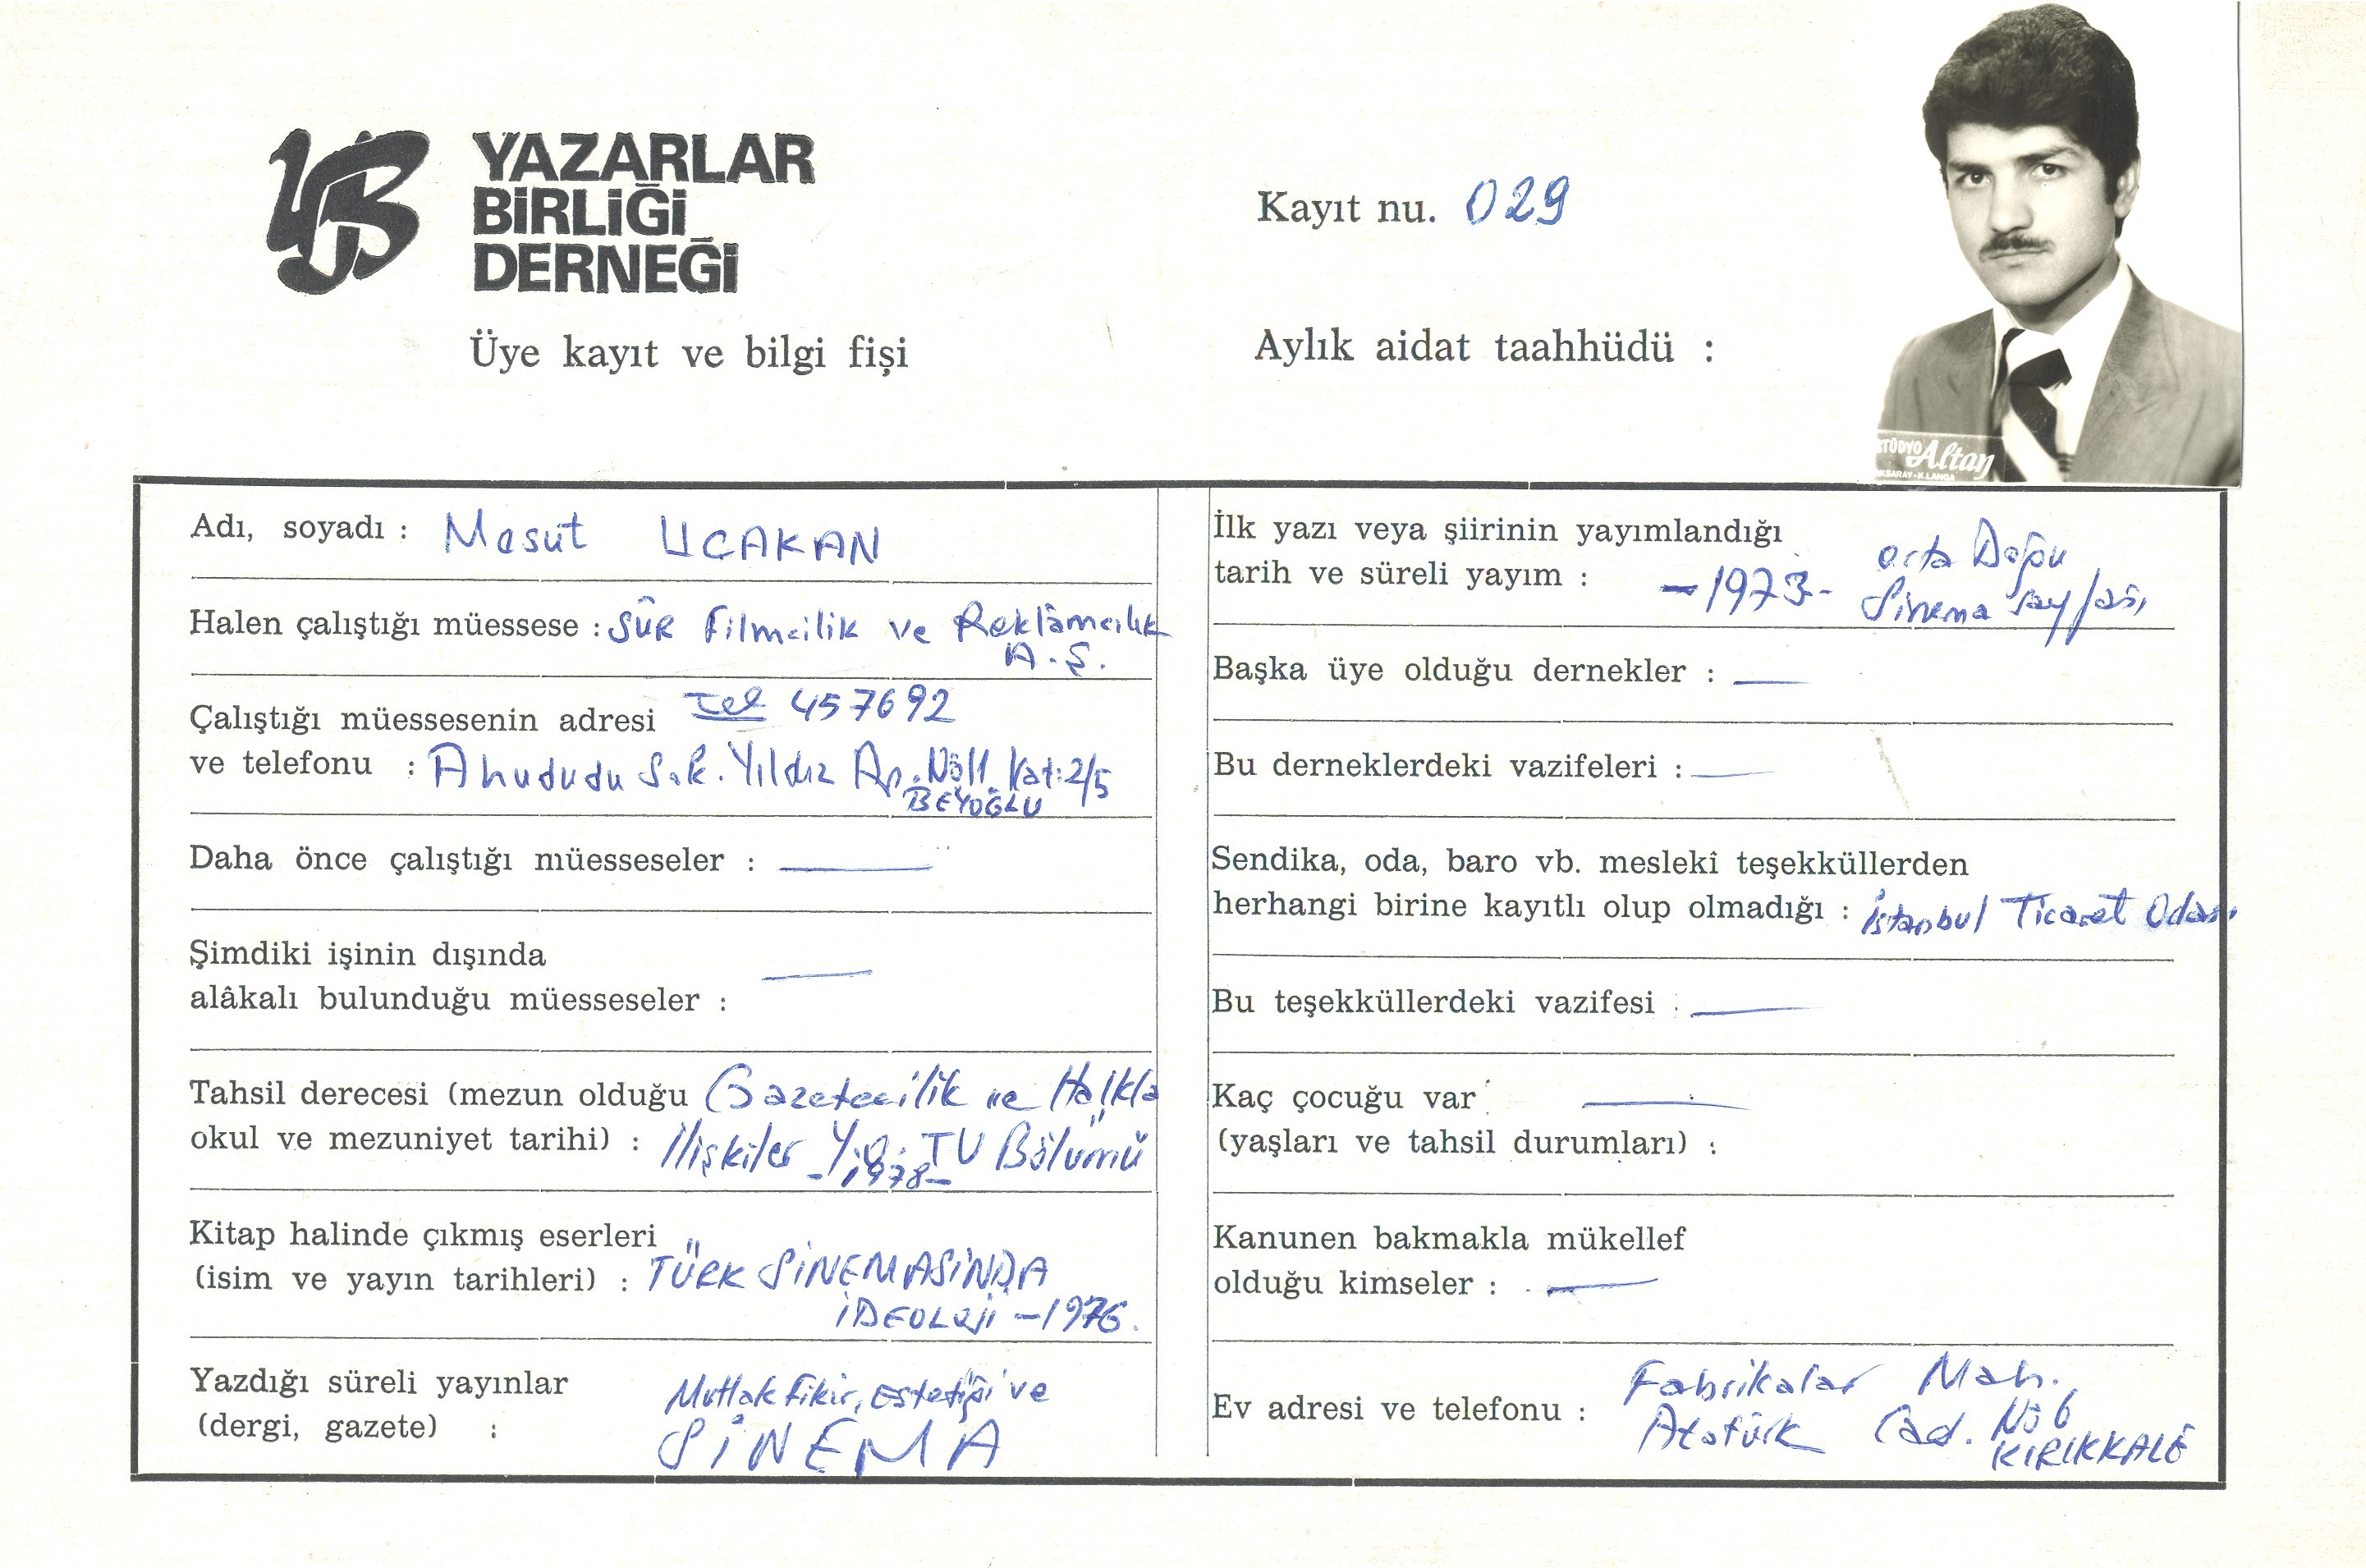 YAZARLAR
BİRLİĞİ
DERNEĞİ
Üye kayıt ve bilgi fişi
Kayıt nu. 029
Aylık aidat taahhüdü :
STÜDYO Altan
AKSARAY-K.LANGA
Adı, soyadı : Mesut UCAKAN
Halen çalıştığı müessese : SÛR Filmcilik ve Reklâmcılık
A.Ş.
Çalıştığı müessesenin adresi Tel 457692
ve telefonu : Ahududu Sok. Yıldız Ap. No:11 Kat:2/5
BEYOĞLU
Daha önce çalıştığı müesseseler : —
Şimdiki işinin dışında —
alâkalı bulunduğu müesseseler :
Tahsil derecesi (mezun olduğu Gazetecilik ve Halkla
okul ve mezuniyet tarihi) : İlişkiler Y.O. TV Bölümü
-1978-
Kitap halinde çıkmış eserleri
(isim ve yayın tarihleri) : TÜRK SİNEMASINDA
İDEOLOJİ -1976.
Yazdığı süreli yayınlar Mutlak Fikir, Estetiği ve
(dergi, gazete) : SİNEMA
İlk yazı veya şiirinin yayımlandığı
tarih ve süreli yayım : -1973- Orta Doğu
Sinema Sayfası
Başka üye olduğu dernekler : —
Bu derneklerdeki vazifeleri : —
Sendika, oda, baro vb. meslekî teşekküllerden
herhangi birine kayıtlı olup olmadığı : İstanbul Ticaret Odası
Bu teşekküllerdeki vazifesi : —
Kaç çocuğu var —
(yaşları ve tahsil durumları) :
Kanunen bakmakla mükellef
olduğu kimseler : —
Ev adresi ve telefonu : Fabrikalar Mah.
Atatürk Cad. No 6
KIRIKKALE